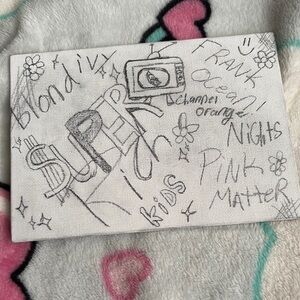 Blond ivy
FRANK
Ocean!
channel
orange
$UPER
Rich
KiDS
NiGHTS
PiNK
MATTER